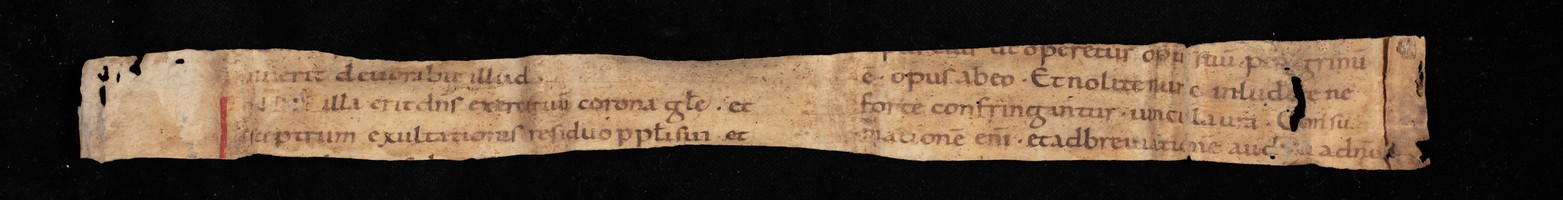 uerit deuorabit illud .
illa erit dn̄s exercituū corona gl̄e . et
sceptrum exultationis residuo ppl̄i sui . et
ut operetur opus suū . peregrinū
ē . opus ab eo . Et nolite nunc inludere ne
forte confringantur . uincula ur̄a . Consu
mationē enī . et adbreuiationē audiui a dn̄o